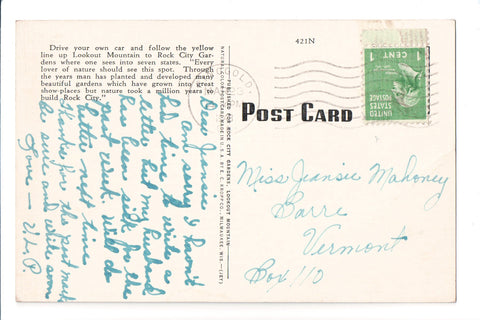 Drive your own car and follow the yellow
line up Lookout Mountain to Rock City Gar-
dens where one sees into seven states. "Every
lover of nature should see this spot. Through
the years man has planted and developed many
beautiful gardens which have grown into great
show-places but nature took a million years to
build Rock City."
Dear Jeansie
am sorry I havn't
had time to write a
letter but my husband
has been sick for the
past week. Will do
better next time
Thanks for the post mark
be sure and write soon
Love - V.L.P.
PUBLISHED FOR ROCK CITY GARDENS, LOOKOUT MOUNTAIN
MADE IN U.S.A. BY E. C. KROPP CO., MILWAUKEE, WIS.
421N
POST CARD
1 CENT 1
UNITED
STATES
POSTAGE
Miss Jeansie Mahoney
Barre
Vermont
Box 110